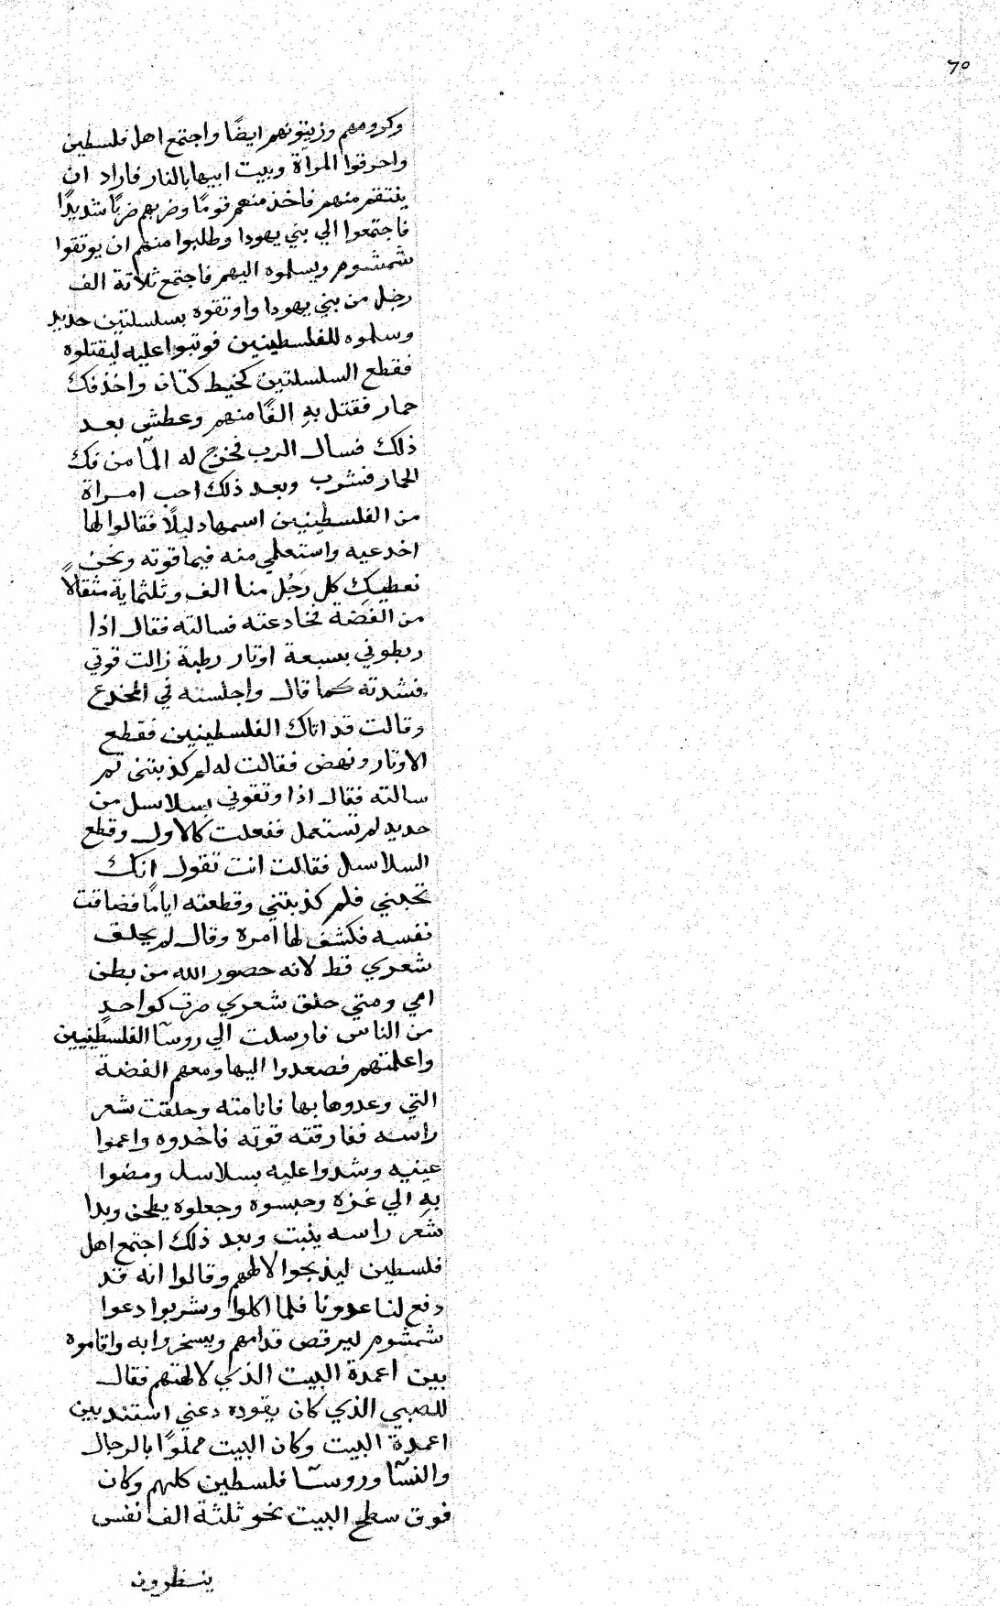 ٦٥
وكرومهم وزيتونهم ايضًا واجتمع اهل فلسطين
واحرقوا المراة وبيت ابيها بالنار فاراد ان
ينتقم منهم فاخذ منهم قومًا وضربهم ضربًا شديدًا
فاجتمعوا الي بني يهودا وطلبوا منهم ان يوتقوا
شمشوم ويسلموه اليهم فاجتمع ثلاثة الف
رجل من بني يهودا واوتقوه بسلسلتين حديد
وسلموه للفلسطينيين فوتبوا عليه ليقتلوه
فقطع السلسلتين كخيط كتان واخذ فك
حمار فقتل بهِ الفًا منهم وعطش بعد
ذلك فسال الرب فخرج له المآ من فك
الحمار فشرب وبعد ذلك احب امراة
من الفلسطينيين اسمها دليلًا فقالوا لها
اخدعيه واستعلمي منه فيما قوته ونحن
نعطيكِ كل رجُل منا الف وثلثماية مثقالًا
من الفضة فخادعته فسالته فقال اذا
ربطوني بسبعة اوتار رطبة زالت قوتي
فشدته كما قال واجلسته في المخدع
وقالت قد اتاك الفلسطينيين فقطع
الاوتار ونهض فقالت له لم كذبتني تم
سالته فقال اذا وتقوني بسلاسل من
حديد لم تستعمل ففعلت كالاول وقطع
السلاسل فقالت انت تقول انك
تحبني فلم كذبتني وقطعته ايامًا فضاقت
نفسه فكشف لها امره وقال لم يحلق
شعري قط لانه حصور الله من بطن
امي ومتي حلق شعري صرت كواحدٍ
من الناس فارسلت الي روسآ الفلسطينيين
واعلمتهم فصعدوا اليها ومعهم الفضة
التي وعدوها بها فانامته وحلقت شعر
راسه ففارقته قوته فاخدوه واعموا
عينيه وشدوا عليه بسلاسل ومضوا
بهِ الي غزه وحبسوه وجعلوه يطحن وبدا
شعر راسه ينبت وبعد ذلك اجتمع اهل
فلسطين ليذبحوا لالهم وقالوا انه قد
دفع لنا عدونا فلما اكلوا وشربوا دعوا
شمشوم ليرقص قدامهم ويسخروا به واقاموه
بين اعمدة البيت الذي لالهتهم فقال
للصبي الذي كان يقوده دعني استند بين
اعمدة البيت وكان البيت مملوًا بالرجال
والنسآ وروسآ فلسطين كلهم وكان
فوق سطح البيت نحو ثلثة الف نفس
ينظرون